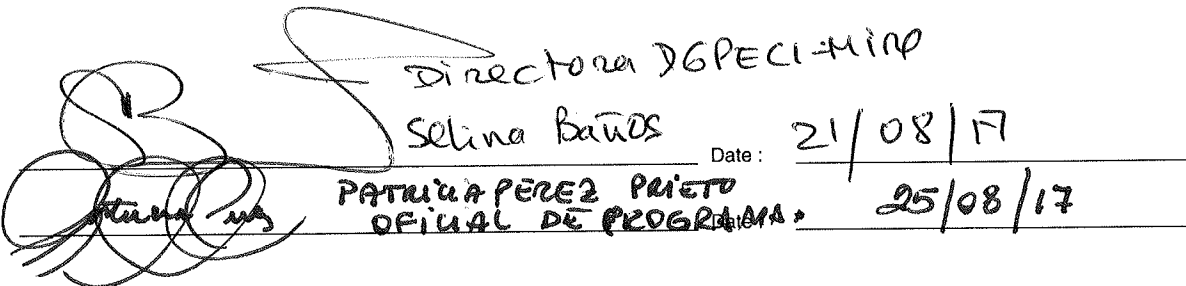 Directora DGPECI-Minp
Selina Baños Date : 21/08/17
PATRICIA PEREZ PRIETO
OFICIAL DE PROGRAMA. 25/08/17